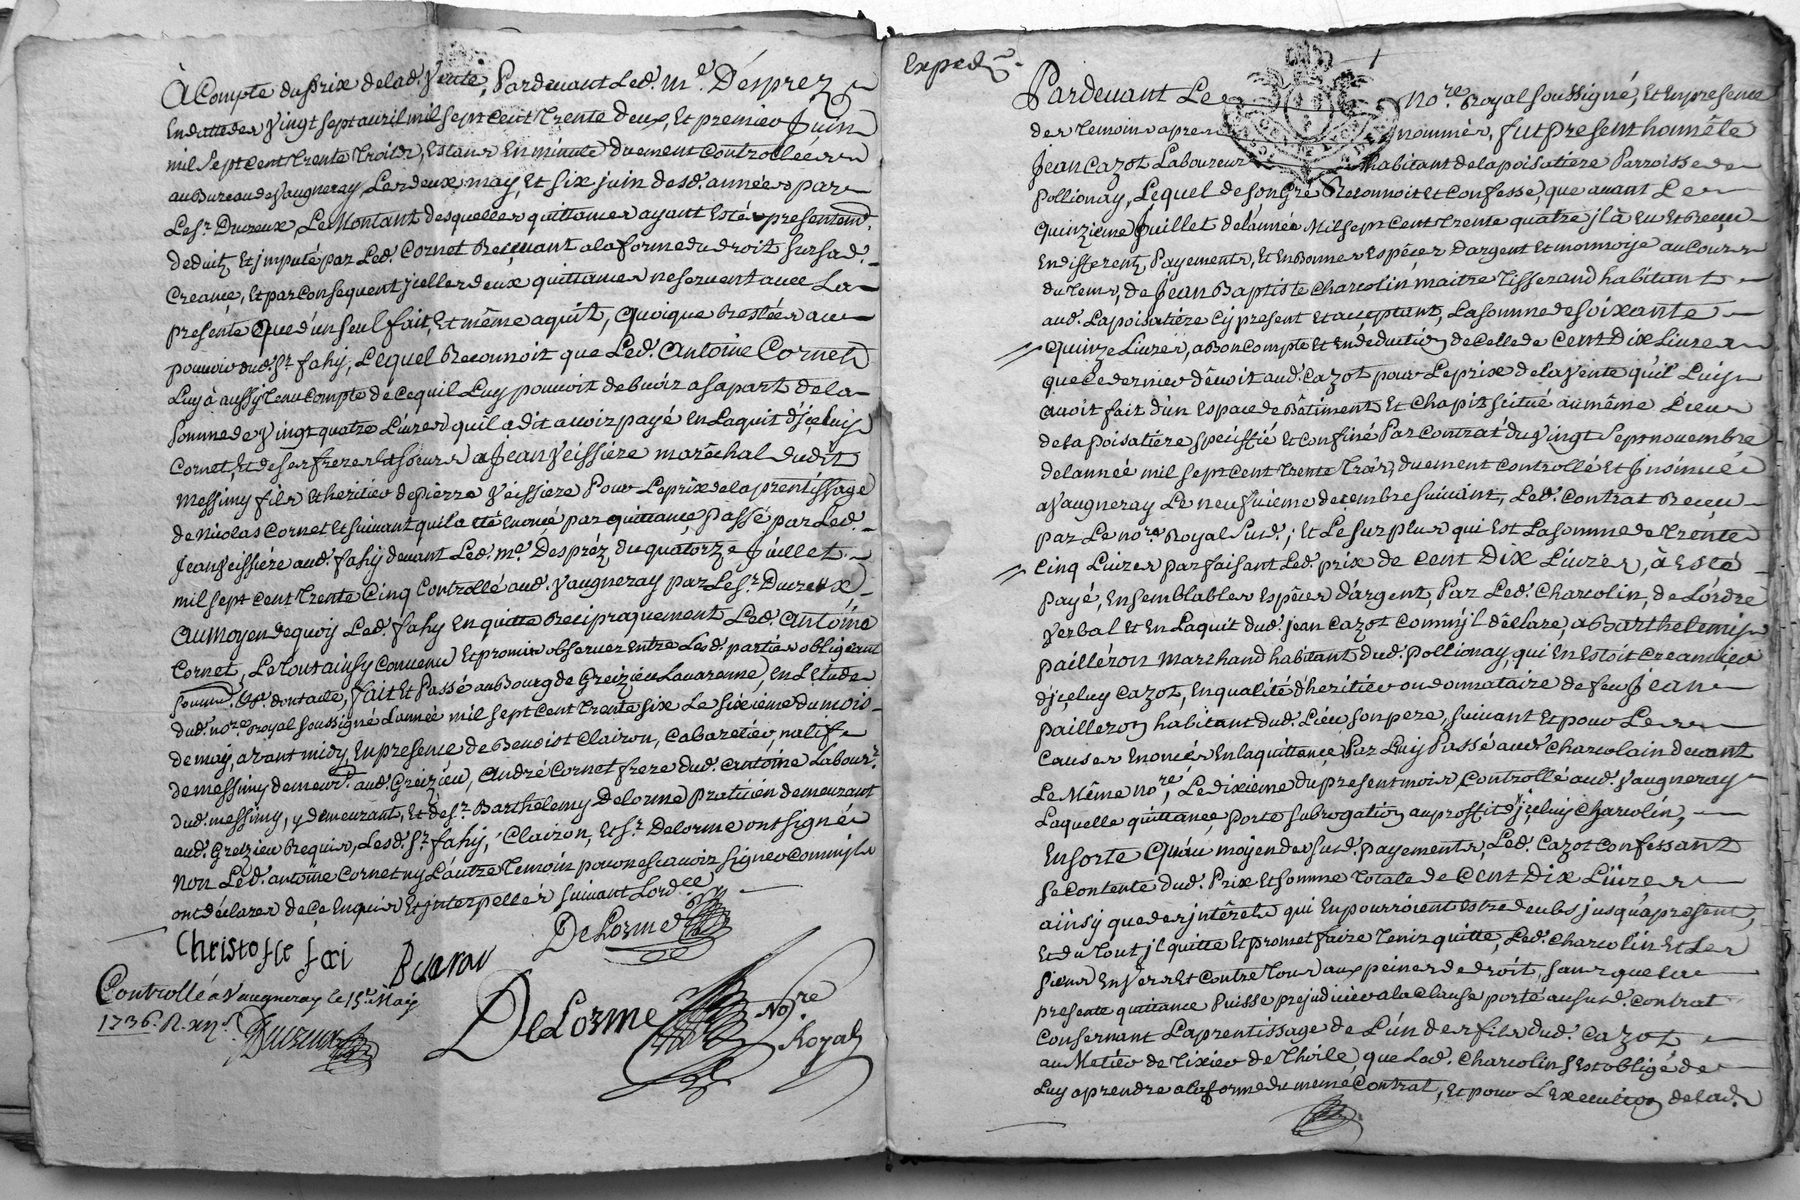 A Compte du prix de lad. Vente, Pardevant Led. Me. Désprez
En datte des Vingt sept avril mil sept cent Trente deux, Et premier Juin
mil sept cent Trente Trois, Estans En minute duement Controllées
au Bureau de Vaugneray Les deux may, Et six juin desd. années par
Le sr. Ducreux, Le Montant desquelles quittances ayant Esté presentemt.
deduit, Et jmputé par Led. Cornet Recevant a la forme du droit sur sad.
Creance, Et par Consequent jcelles deux quittances ne servent avec La
presente Que d'un seul fait, Et même aquit, Quoique Restées au
pouvoir dud. Sr. fahy, Lequel Reconnoit que Led. Antoine Cornet
Luy à aussy Tenu Compte de ce quil Luy pouvoit debvoir a sa part de la
somme de Vingt quatre Livres quil a dit avoir payé En Laquit d'jceluy
Cornet, Et de ses freres Et soeurs a Jean Veissiére maréchal dudit
Messimy fils Et heritier de Pierre Veissiere Pour Le prix de laprentissage
de Nicolas Cornet Et suivant quil a été Enoncé par quittance Passé par Led.
Jean Veissiére aud. fahy devant Led. me. Despréz du quatorze Juillet
mil sept cent Trente Cinq Controllé aud. Vaugneray par Le sr. Ducreux
Au moyen de quoy Led. fahy En quitte Reciproquement Led. Antoine
Cornet, Le Tout ainsy Convenu Et promis observer Entre Lesd. parties obligeant
dont acte, fait Et Passé au Bourg de Greizieu Lavarenne, En L'etude
dud. nore. Royal soussigné Lannée mil sept cent Trente six Le sixieme du mois
de may, avant midy, En presence de Benoist Clairon, Cabaretier, natif
de messimy demeurt. aud. Greizieu, André Cornet frere dud. Antoine Labourr.
dud. messimy, y demeurant, Et de sr. Barthélemy Delorme praticien demeurant
aud. Greizieu Requis, Lesd. Sr. fahy, Clairon, Et sr. Delorme ont signé
Non Led. antoine Cornet ny L'autre Temoin pour ne scavoir signer comm'jls
ont déclarer de ce Enquis Et jnterpellés suivant Lord.ce
Christofle faÿ
DeLorme
Controllé à Vaugneray le 15e. May
1736.
DeLorme
Nore.
Royal
Expedié.
Pardevant Le Nore. Royal soussigné, Et En presence
des Temoins apres nommés, fut present honnête
Jean Cazot Laboureur habitant de la poisatiére Parroisse de
Pollionay, Lequel de son Gré Reconnoit Et Confesse, que avant Le
Quinzieme Juillet de lannée Mil sept Cent Trente quatre jl à Eu Et Receu
En differents Payements, Et En Bonnes Espêces D'argent Et monnoye au Cours
du Tems, de Jean Baptiste Charcolin maitre Tisserand habitant
aud. La poisatiére Cy present Et acceptant, La somme de soixante
Quinze Livres, a Bon Compte Et En deduction de celle de Cent Dix Livres
que ce dernier dêvoit aud. Cazot pour Le prix de la Vente qu'il Luy
avoit fait d'un Espace de Bâtiment Et Chapit scitué au même Lieu
de la Poisatiére speciffié Et Confiné Par Contrat du Vingt Sept novembre
de lannéé mil sept Cent Trente Trois, duement Controllé Et Jnsinué
a Vaugneray Le neufvieme decembre suivant, Led. Contrat Receu
par Le nore. Royal susd.; Et Le surplus qui Est La somme de Trente
Cinq Livres parfaisant Led. prix de Cent Dix Livres, à Esté
payé, En semblables Espêces d'argent, Par Led. Charcolin, de L'ordre
Verbal Et En Laquit dud. Jean Cazot Comm'jl dêclare, a Barthelemy
Paillézon Marchand habitant dud. Pollionay, qui En Estoit Creancier
d'jceluy Cazot, En qualité d'heritier ou donnataire de feu Jean
Paillezon habitant dud. Lieu son pere, suivant Et pour Les
Causes Enoncés En la quittance Par Luy Passé aud. Charcolain devant
Le Même nore., Le dixieme du present mois Controllé aud. Vaugneray
Laquelle quittance porte subrogation au proffit d'jceluy Charcolin,
En sorte Qu'au moyen des susd. payements, Led. Cazot Confessant
se Contente dud. Prix Et somme Totale de Cent Dix Livres
ainsy que des jntêrets qui En pourroient Estre deubs jusqu'apresent,
Et du Tout jl quitte Et promet faire Tenir quitte, Led. Charcolin Et Les
siens Envers Et Contre Tous aux peines de droit, sans que la
presente quittance Puisse prejudicier a la Clause porté au susd. Contrat
Consernant Laprentissage de L'un des fils dud. Cazot
au Metier de Tixier de Thoile, que Led. Charcolin s'Est obligé de
Luy aprendre a la forme du meme Contrat, Et pour L'Execution de lad.